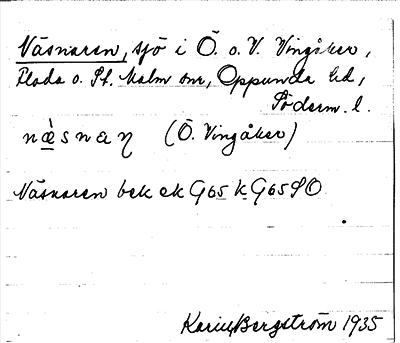 Näsnaren, sjö i Ö. o. V. Vingåker,
Floda o. St. Malm snr, Oppunda hd,
Söderm. l.
næ̀snaꞃ (Ö. Vingåker)
Näsnaren bek ek G65 k G65 SO
Karin Bergström 1935